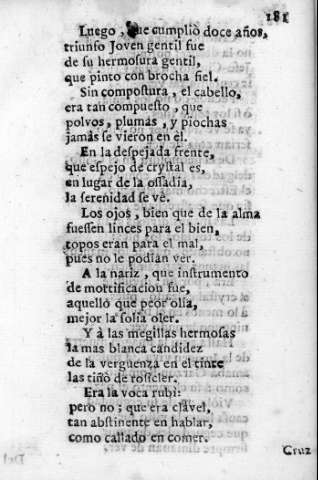 181
Luego, que cumpliò doce años,
triunfo Joven gentil fue
de su hermosura gentil,
que pinto con brocha fiel.
Sin compostura, el cabello,
era tan compuesto, que
polvos, plumas, y piochas
jamàs se vieron en èl.
En la despejada frente,
que espejo de crystal es,
en lugar de la ossadia,
la serenidad se vè.
Los ojos, bien que de la alma
fuessen linces para el bien,
topos eran para el mal,
pues no le podian ver.
A la nariz, que instrumento
de mortificacion fue,
aquello que peor olìa,
mejor la solìa oler.
Y à las megillas hermosas
la mas blanca candidèz
de la verguenza en el tinte
las tiñò de rosicler.
Era la voca rubì:
pero no; que era clavel,
tan abstinente en hablar,
como callado en comer.
Cruz